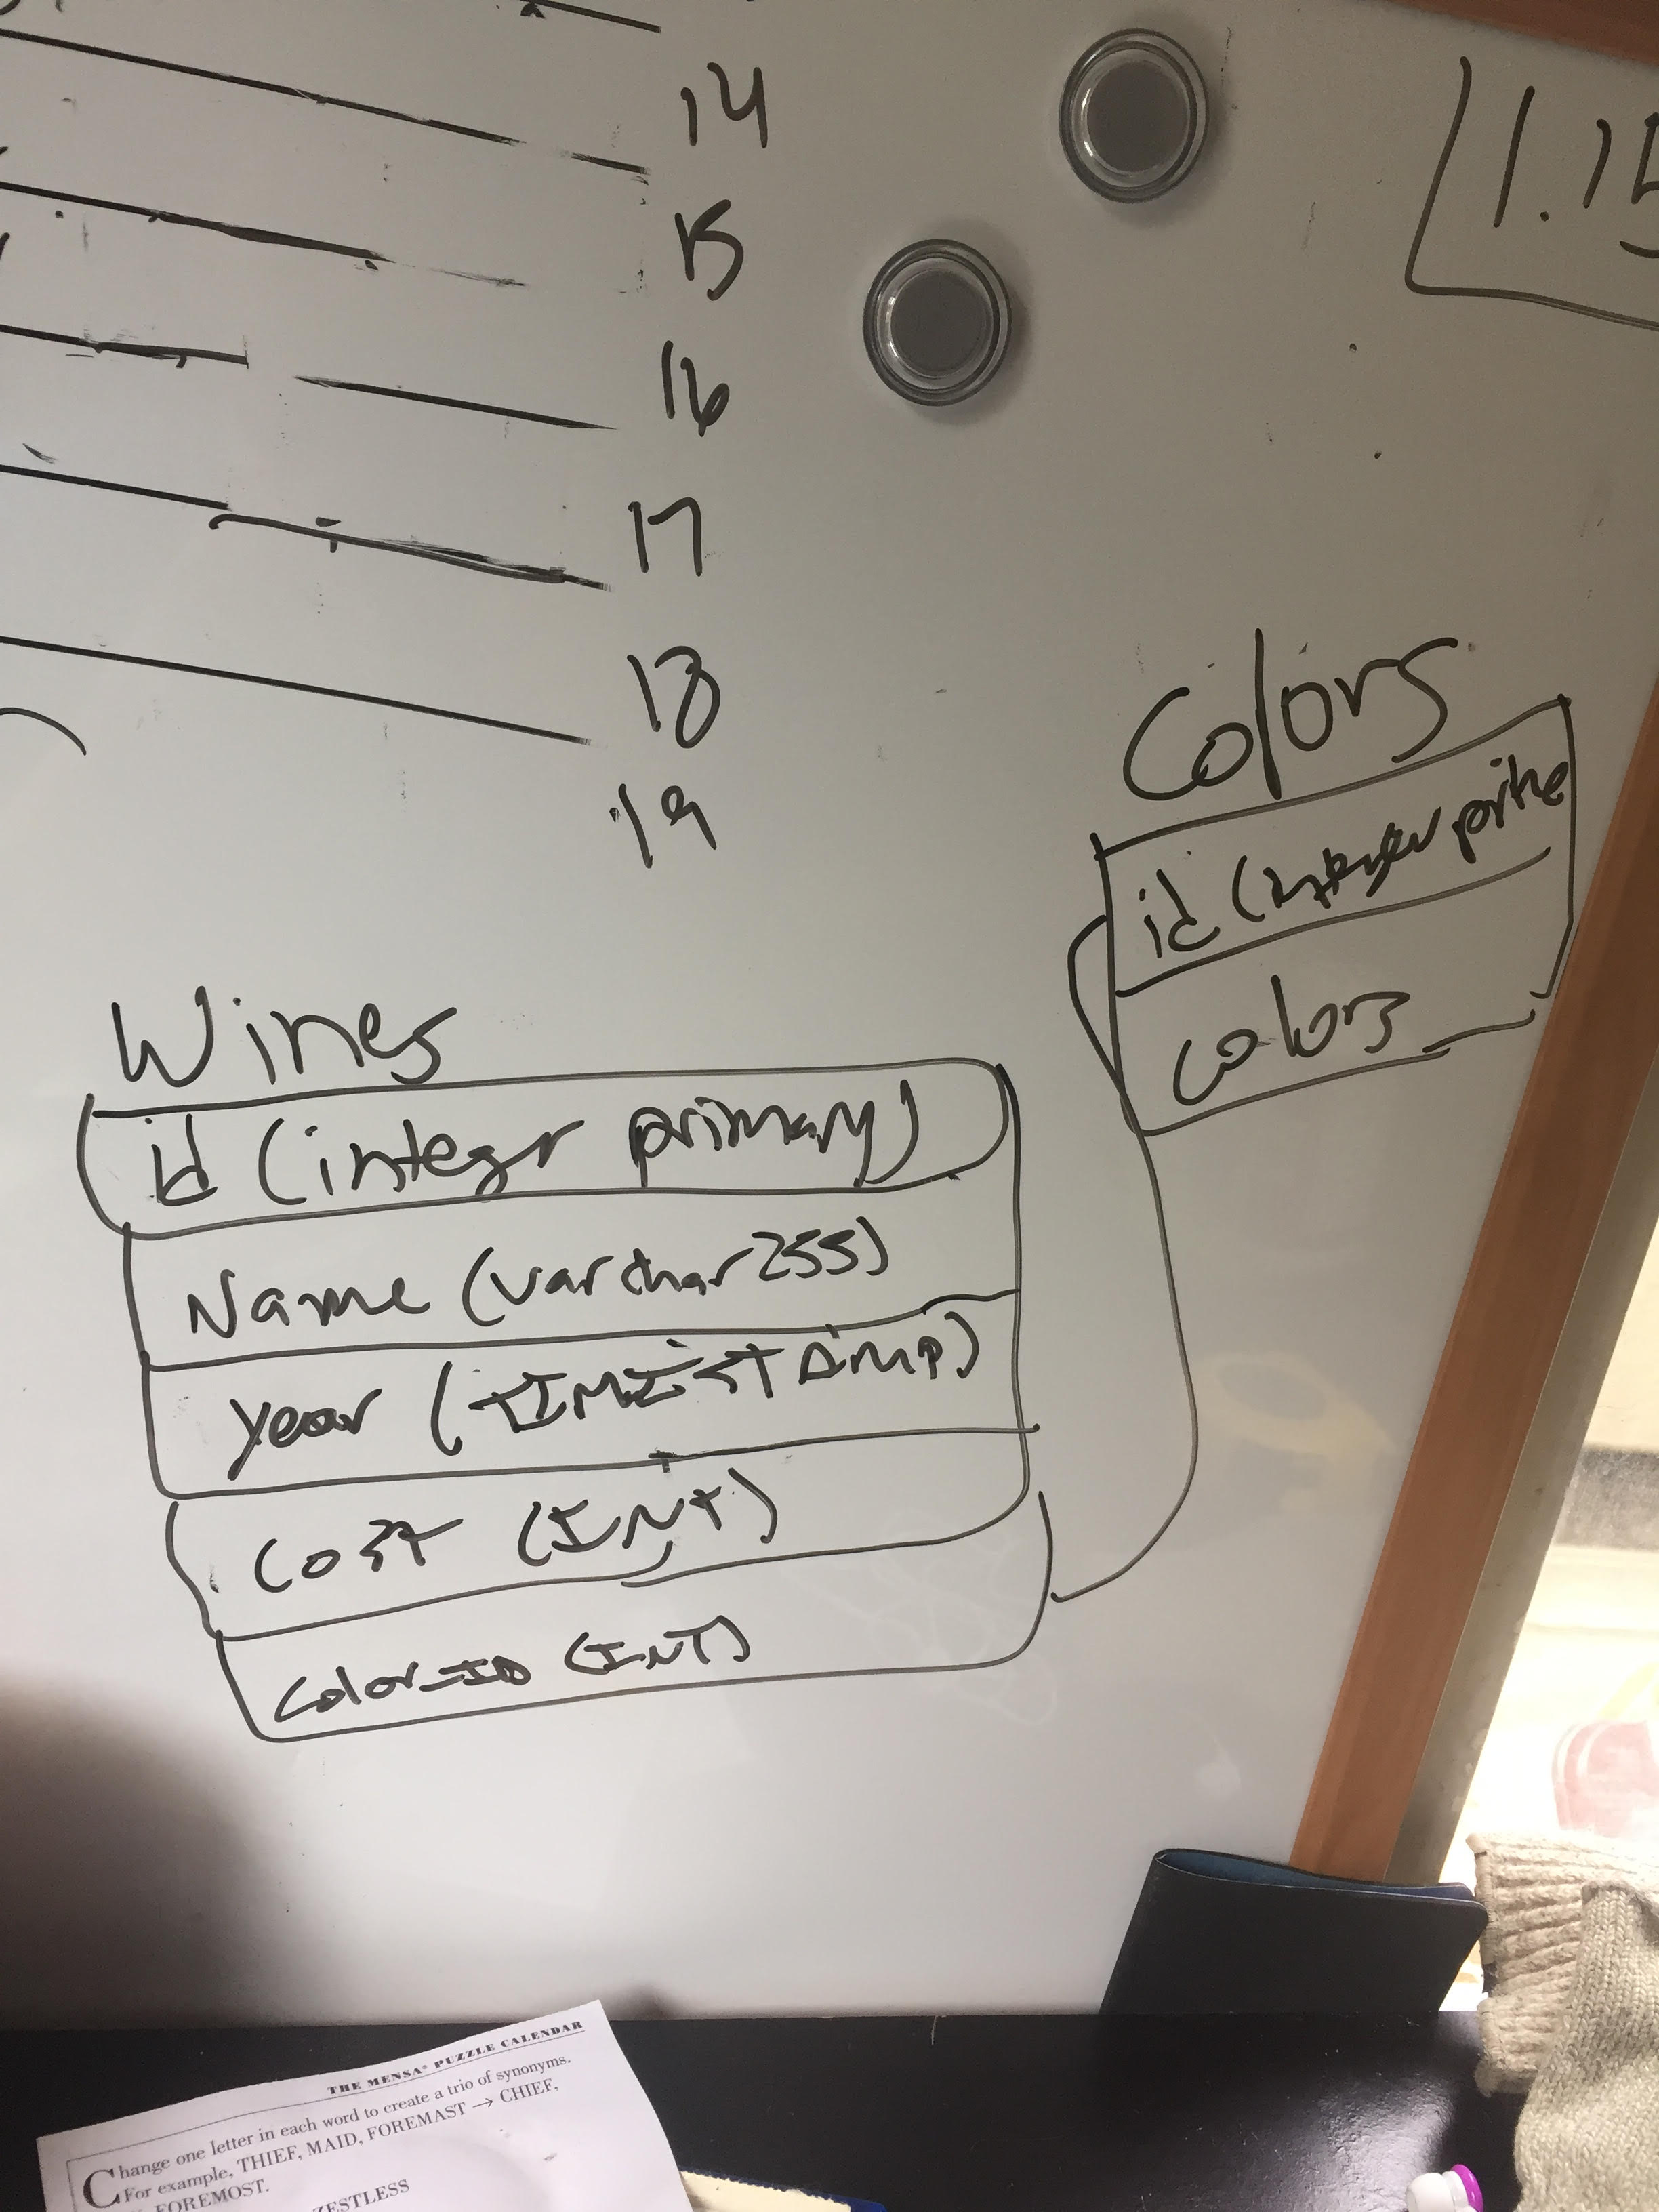 14
15
16
17
18
19
1.15
Colors
id (integer
colors
Wines
id (integr primary)
Name (varchar 255)
year (TIMESTAMP)
Cost (INT)
Color_ID (INT)
THE MENSA® PUZZLE CALENDAR
Change one letter in each word to create a trio of synonyms.
For example, THIEF, MAID, FOREMAST → CHIEF,
FOREMOST.
ZESTLESS